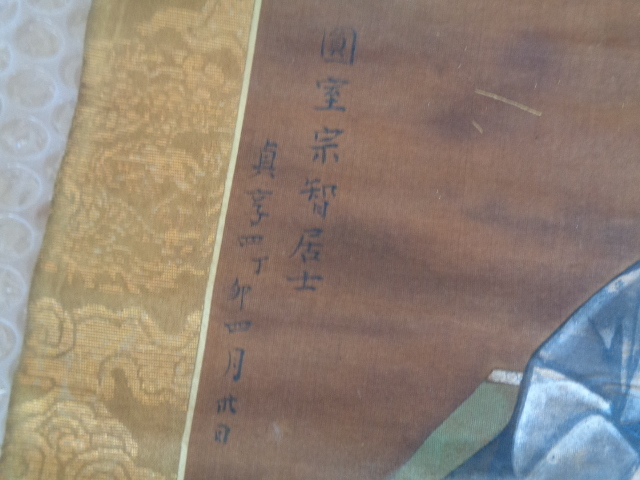 圓室宗智居士
貞享四丁卯四月日